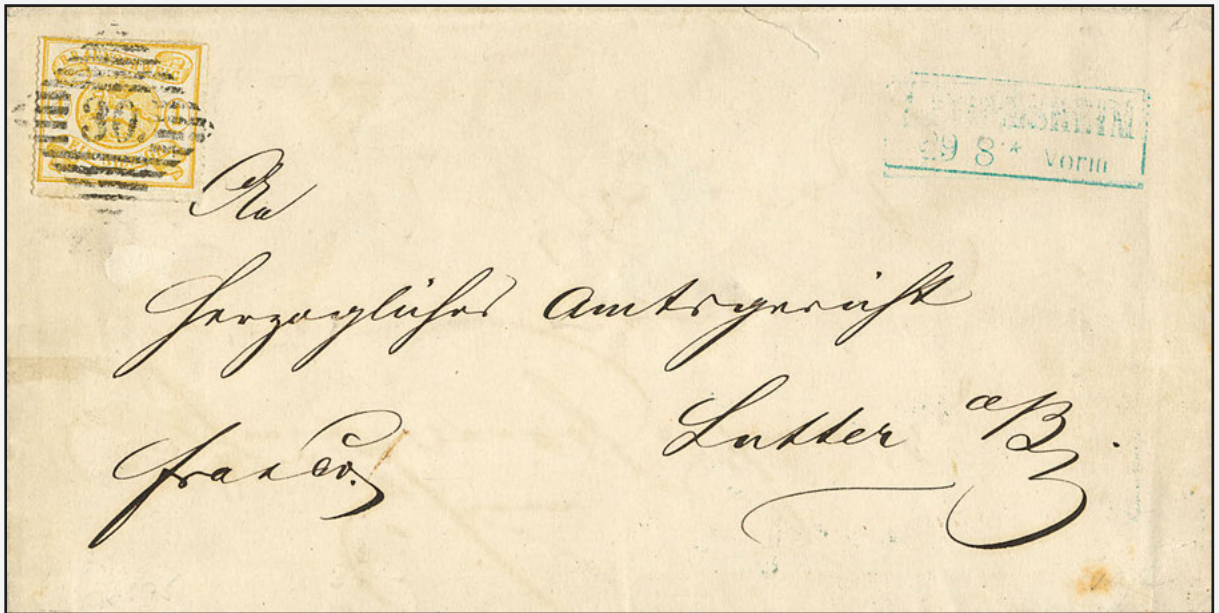 30.
29 8 * Vorm
An
Herzogliches Amtsgericht
Lutter a B.
franco.